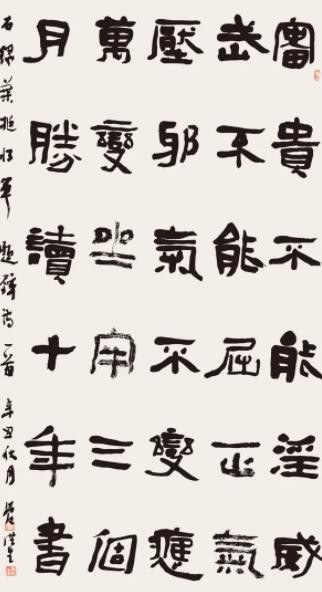 富貴不能淫威
武不能屈正氣
壓邪氣不變應
萬變坐牢三個
月勝讀十年書
右錄葉挺將軍題壁詩一首 辛丑秋月